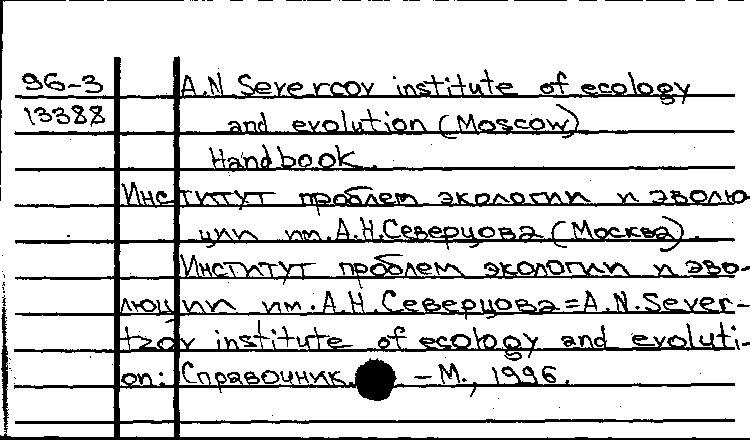 96-3 A.N Severcov institute of ecology
13388 and evolution (Moscow)
Handbook.
Институт проблем экологии и эволю
ции им. А.Н.Северцова (Москва).
Институт проблем экологии и эво-
люции им. А.Н.Северцова = A.N.Sever-
tzov institute of ecology and evoluti-
on: Справочник. - М., 1996.